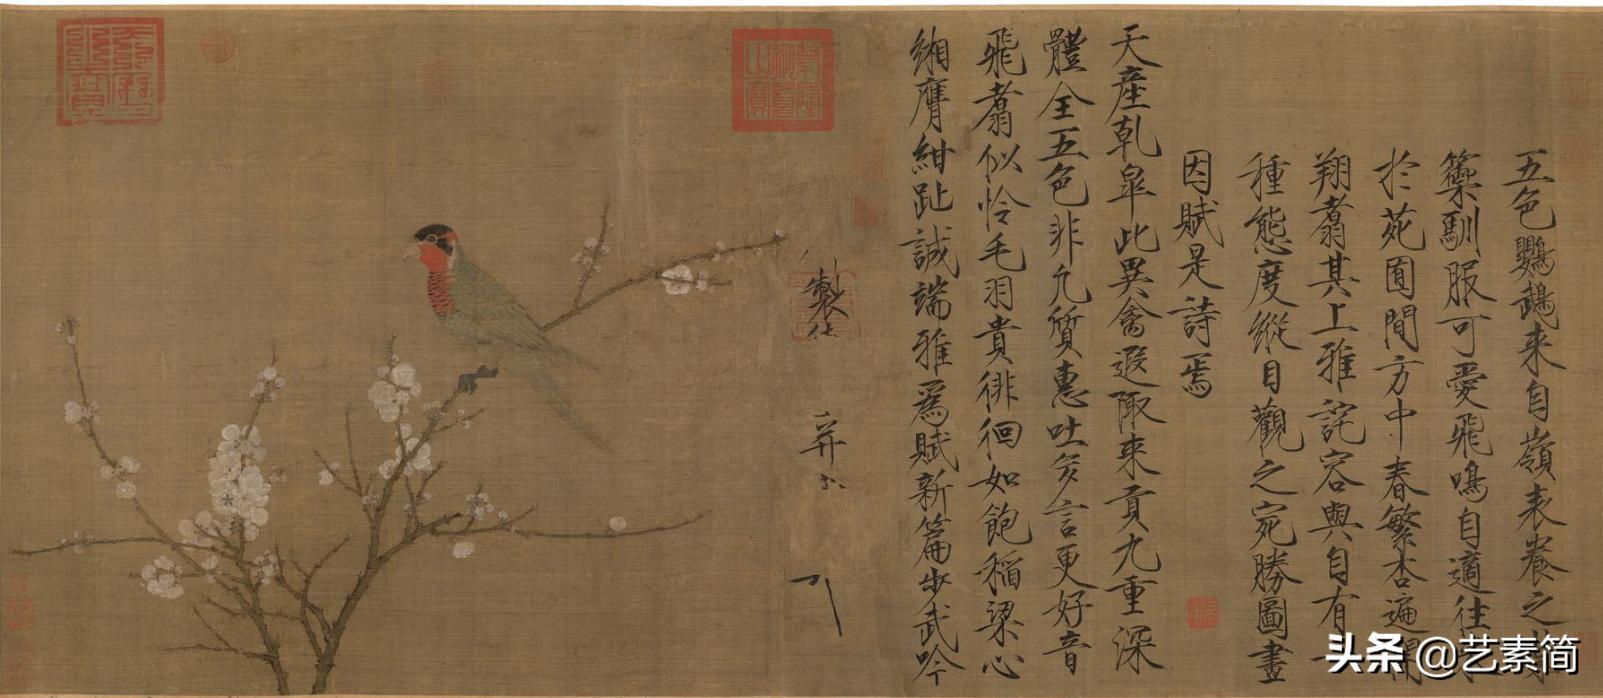 五色鸚鵡来自嶺表養之
籞馴服可愛飛鳴自適往
於苑囿間方中春繁杏遍開
翔翥其上雅詫容與自有
種態度縱目觀之宛勝圖畫
因賦是詩焉
天産乹皐此異禽遐陬来貢九重深
體全五色非凡質惠吐多言更好音
飛翥似怜毛羽貴徘徊如飽稻粱心
緗膺紺趾誠端雅爲賦新篇步武吟
製
并
頭条 @艺素简